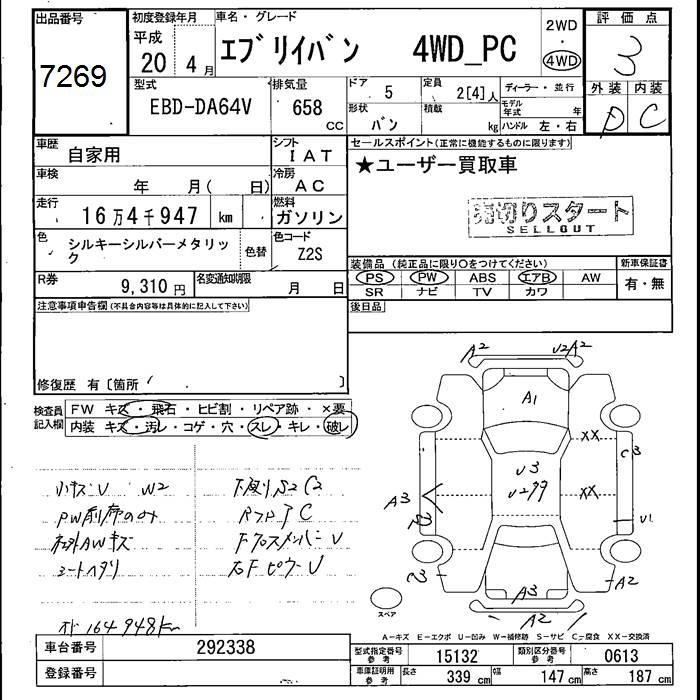 出品番号
7269
初度登録年月
平成
20 4 月
車名・グレード
エブリイバン 4WD_PC
2WD
・
4WD
評価点
3
外装 内装
D C
型式
EBD-DA64V
排気量
658
CC
ドア
5
定員
2[4]人
ディーラー・並行
形状
バン
積載
kg
モデル年式 年
ハンドル 左・右
車歴
自家用
シフト
IAT
車検
年 月( 日)
冷房
AC
走行
16万4千947 km
燃料
ガソリン
色
シルキーシルバーメタリック
色替
色コード
Z2S
R券
9,310円
名変通知期限
月 日
セールスポイント(正常に機能するものに限ります)
★ユーザー買取車
売切りスタート
SELLOUT
装備品(純正品に限り○をつけてください)
PS PW ABS エアB AW
SR ナビ TV カワ
新車保証書
有・無
後日品
注意事項申告欄(不具合内容等は具体的に記入して下さい)
修復歴 有〔箇所 〕
検査員
記入欄
FW キズ・飛石・ヒビ割・リペア跡・×要
内装 キズ・汚レ・コゲ・穴・スレ・キレ・破レ
小キズU W2
下廻りS2 C2
PW前席のみ
社外AWキズ
FクロスメンバーU
シートヘタリ
右FピラーU
164948km
A2
U2A2
A1
XX
U3
U299
XX
A3
C3
U1
C3
A3
A2
A2
スペア
A-キズ E-エクボ U-凹み W-補修跡 S-サビ C-腐食 XX-交換済
車台番号
292338
登録番号
型式指定番号
参考
15132
類別区分番号
参考
0613
車庫証明用
参考
長さ
339 cm
幅
147 cm
高さ
187 cm